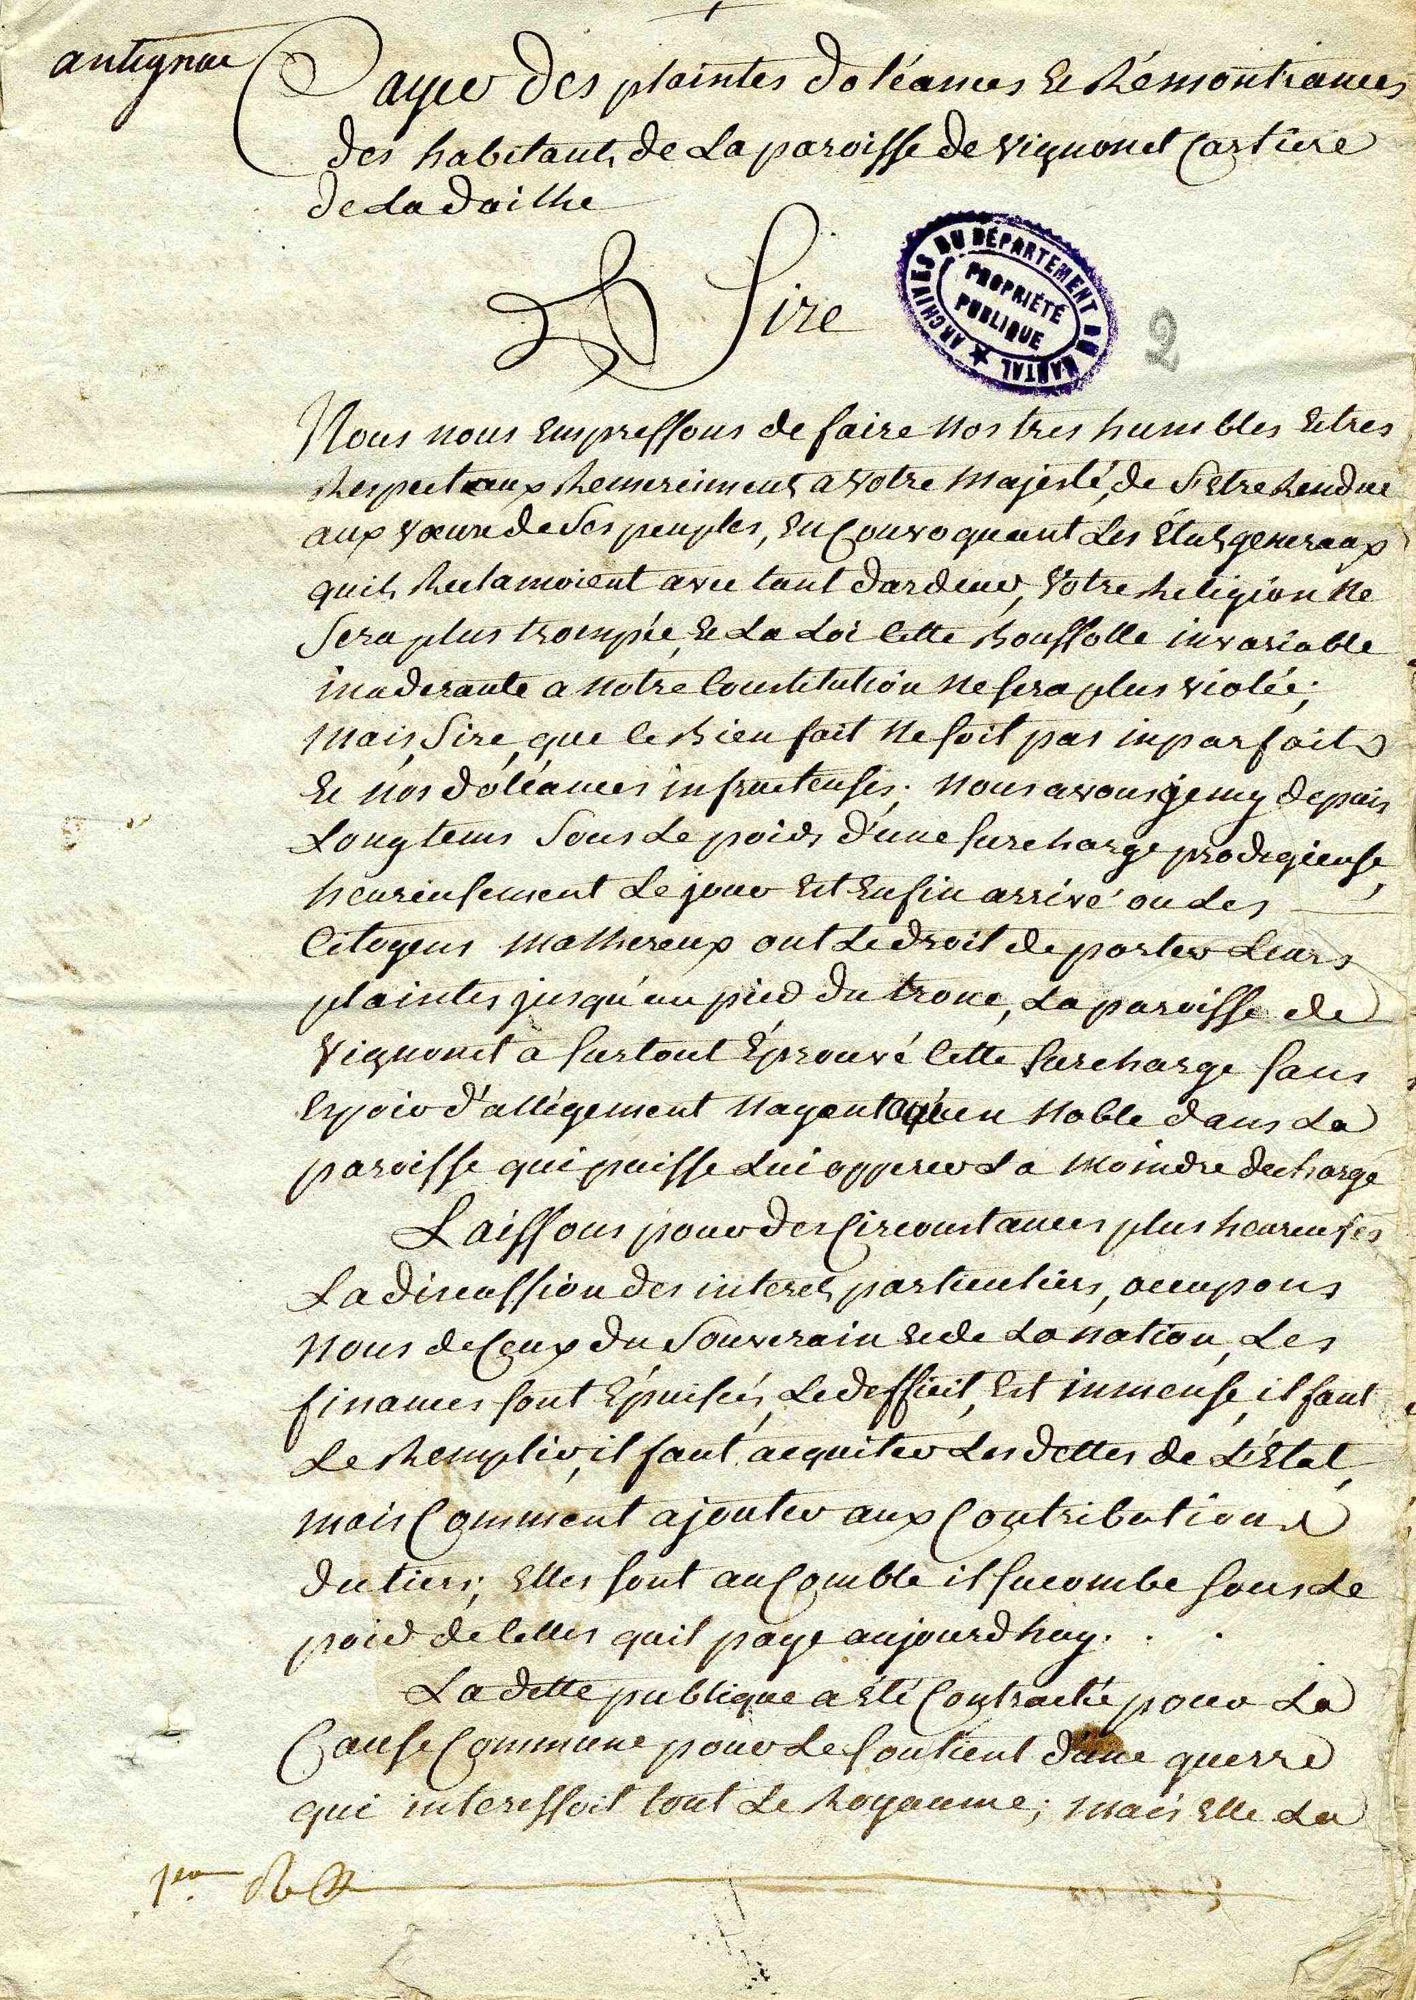 antignac
Cayer des plaintes doléances Et Rémontrances
des habitants de La paroisse de vignonet Cartiere
de La daille
Sire
ARCHIVES DU DÉPARTEMENT DU CANTAL
PROPRIÉTÉ PUBLIQUE
2
Nous nous Empressons de faire Nos tres humbles Et tres
Respectueux Remerciments a votre Majesté, de S'etre Rendue
aux vœux de Ses peuples, En Convoquant Les Etats generaux
quils Reclamoient avec tant dardeur, votre Religion Ne
Sera plus trompée, Et La Loi Cette Boussolle invariable
inaderante a Notre Constitution Ne sera plus violée;
Mais, Sire, que le Bien fait Ne soit pas inparfait
Et Nos doléances infructeuses; Nous avons gemy depuis
Longtems Sous Le poids d'une surcharge prodigieuse,
heureusement Le jour Est Enfin arrivé ou Les
Citoyens Malhereux ont Le droit de porter Leurs
plaintes jusqu'au pied du trone, La paroisse de
vignonet a surtout Éprouvé Cette surcharge sans
Espoir d'allégement Nayant aucun Noble dans La
paroisse qui puisse Lui opperer La Moindre decharge
Laissons pour des Circonstances plus heureuses
La discussion des interets particuliers, occupons
Nous de Ceux du Souverain Et de La nation, Les
finances sont Epuisées, Le defficit, Est inmense, il faut
Le Remplir, il faut acquiter Les dettes de L'Etat,
mais Comment ajouter aux Contributions
du tiers; Elles sont au Comble il sucombe sous Le
poid de Celles quil paye aujourdhuy. . .
La dette publique a été Contractée pour La
Cause Commune pour Le soutient d'une guerre
qui interessoit tout Le Royaume; Mais Elle La